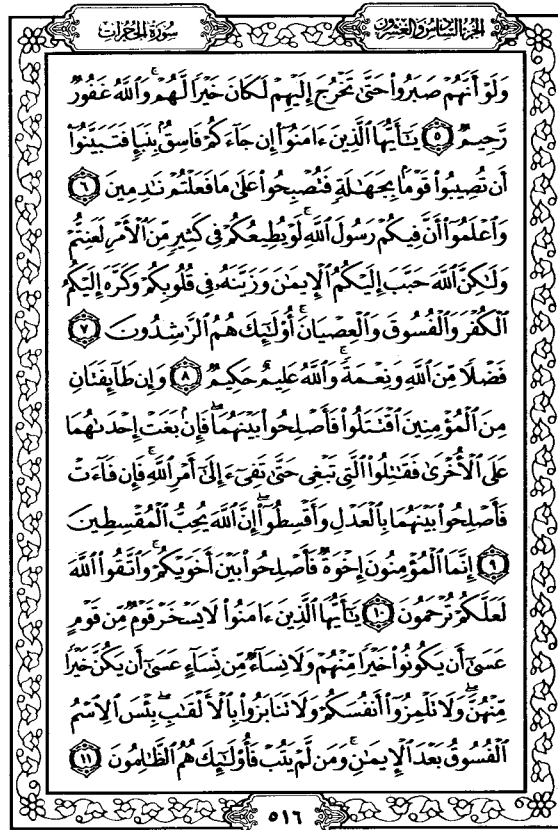 سُورَةُ الحُجُرَاتِ
الجُزْءُ السَّادِسُ وَالعِشْرُونَ
وَلَوْ أَنَّهُمْ صَبَرُوا۟ حَتَّىٰ تَخْرُجَ إِلَيْهِمْ لَكَانَ خَيْرًا لَّهُمْ ۚ وَٱللَّهُ غَفُورٌ
رَّحِيمٌ ٥ يَـٰٓأَيُّهَا ٱلَّذِينَ ءَامَنُوٓا۟ إِن جَآءَكُمْ فَاسِقٌۢ بِنَبَإٍ فَتَبَيَّنُوٓا۟
أَن تُصِيبُوا۟ قَوْمًۢا بِجَهَـٰلَةٍ فَتُصْبِحُوا۟ عَلَىٰ مَا فَعَلْتُمْ نَـٰدِمِينَ ٦
وَٱعْلَمُوٓا۟ أَنَّ فِيكُمْ رَسُولَ ٱللَّهِ ۚ لَوْ يُطِيعُكُمْ فِى كَثِيرٍ مِّنَ ٱلْأَمْرِ لَعَنِتُّمْ
وَلَـٰكِنَّ ٱللَّهَ حَبَّبَ إِلَيْكُمُ ٱلْإِيمَـٰنَ وَزَيَّنَهُۥ فِى قُلُوبِكُمْ وَكَرَّهَ إِلَيْكُمُ
ٱلْكُفْرَ وَٱلْفُسُوقَ وَٱلْعِصْيَانَ ۚ أُو۟لَـٰٓئِكَ هُمُ ٱلرَّٰشِدُونَ ٧
فَضْلًا مِّنَ ٱللَّهِ وَنِعْمَةً ۚ وَٱللَّهُ عَلِيمٌ حَكِيمٌ ٨ وَإِن طَآئِفَتَانِ
مِنَ ٱلْمُؤْمِنِينَ ٱقْتَتَلُوا۟ فَأَصْلِحُوا۟ بَيْنَهُمَا ۖ فَإِنۢ بَغَتْ إِحْدَىٰهُمَا
عَلَى ٱلْأُخْرَىٰ فَقَـٰتِلُوا۟ ٱلَّتِى تَبْغِى حَتَّىٰ تَفِىٓءَ إِلَىٰٓ أَمْرِ ٱللَّهِ ۚ فَإِن فَآءَتْ
فَأَصْلِحُوا۟ بَيْنَهُمَا بِٱلْعَدْلِ وَأَقْسِطُوٓا۟ ۖ إِنَّ ٱللَّهَ يُحِبُّ ٱلْمُقْسِطِينَ
٩ إِنَّمَا ٱلْمُؤْمِنُونَ إِخْوَةٌ فَأَصْلِحُوا۟ بَيْنَ أَخَوَيْكُمْ ۚ وَٱتَّقُوا۟ ٱللَّهَ
لَعَلَّكُمْ تُرْحَمُونَ ١٠ يَـٰٓأَيُّهَا ٱلَّذِينَ ءَامَنُوا۟ لَا يَسْخَرْ قَوْمٌ مِّن قَوْمٍ
عَسَىٰٓ أَن يَكُونُوا۟ خَيْرًا مِّنْهُمْ وَلَا نِسَآءٌ مِّن نِّسَآءٍ عَسَىٰٓ أَن يَكُنَّ خَيْرًا
مِّنْهُنَّ ۖ وَلَا تَلْمِزُوٓا۟ أَنفُسَكُمْ وَلَا تَنَابَزُوا۟ بِٱلْأَلْقَـٰبِ ۖ بِئْسَ ٱلِٱسْمُ
ٱلْفُسُوقُ بَعْدَ ٱلْإِيمَـٰنِ ۚ وَمَن لَّمْ يَتُبْ فَأُو۟لَـٰٓئِكَ هُمُ ٱلظَّـٰلِمُونَ ١١
٥١٦